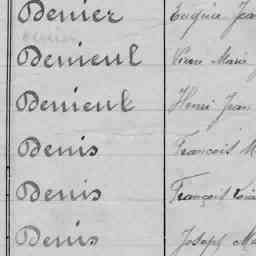 Denier Eugène Jean
Denieul Marie
Denieul Henri Jean
Denis François M
Denis François Louis
Denis Joseph Ma